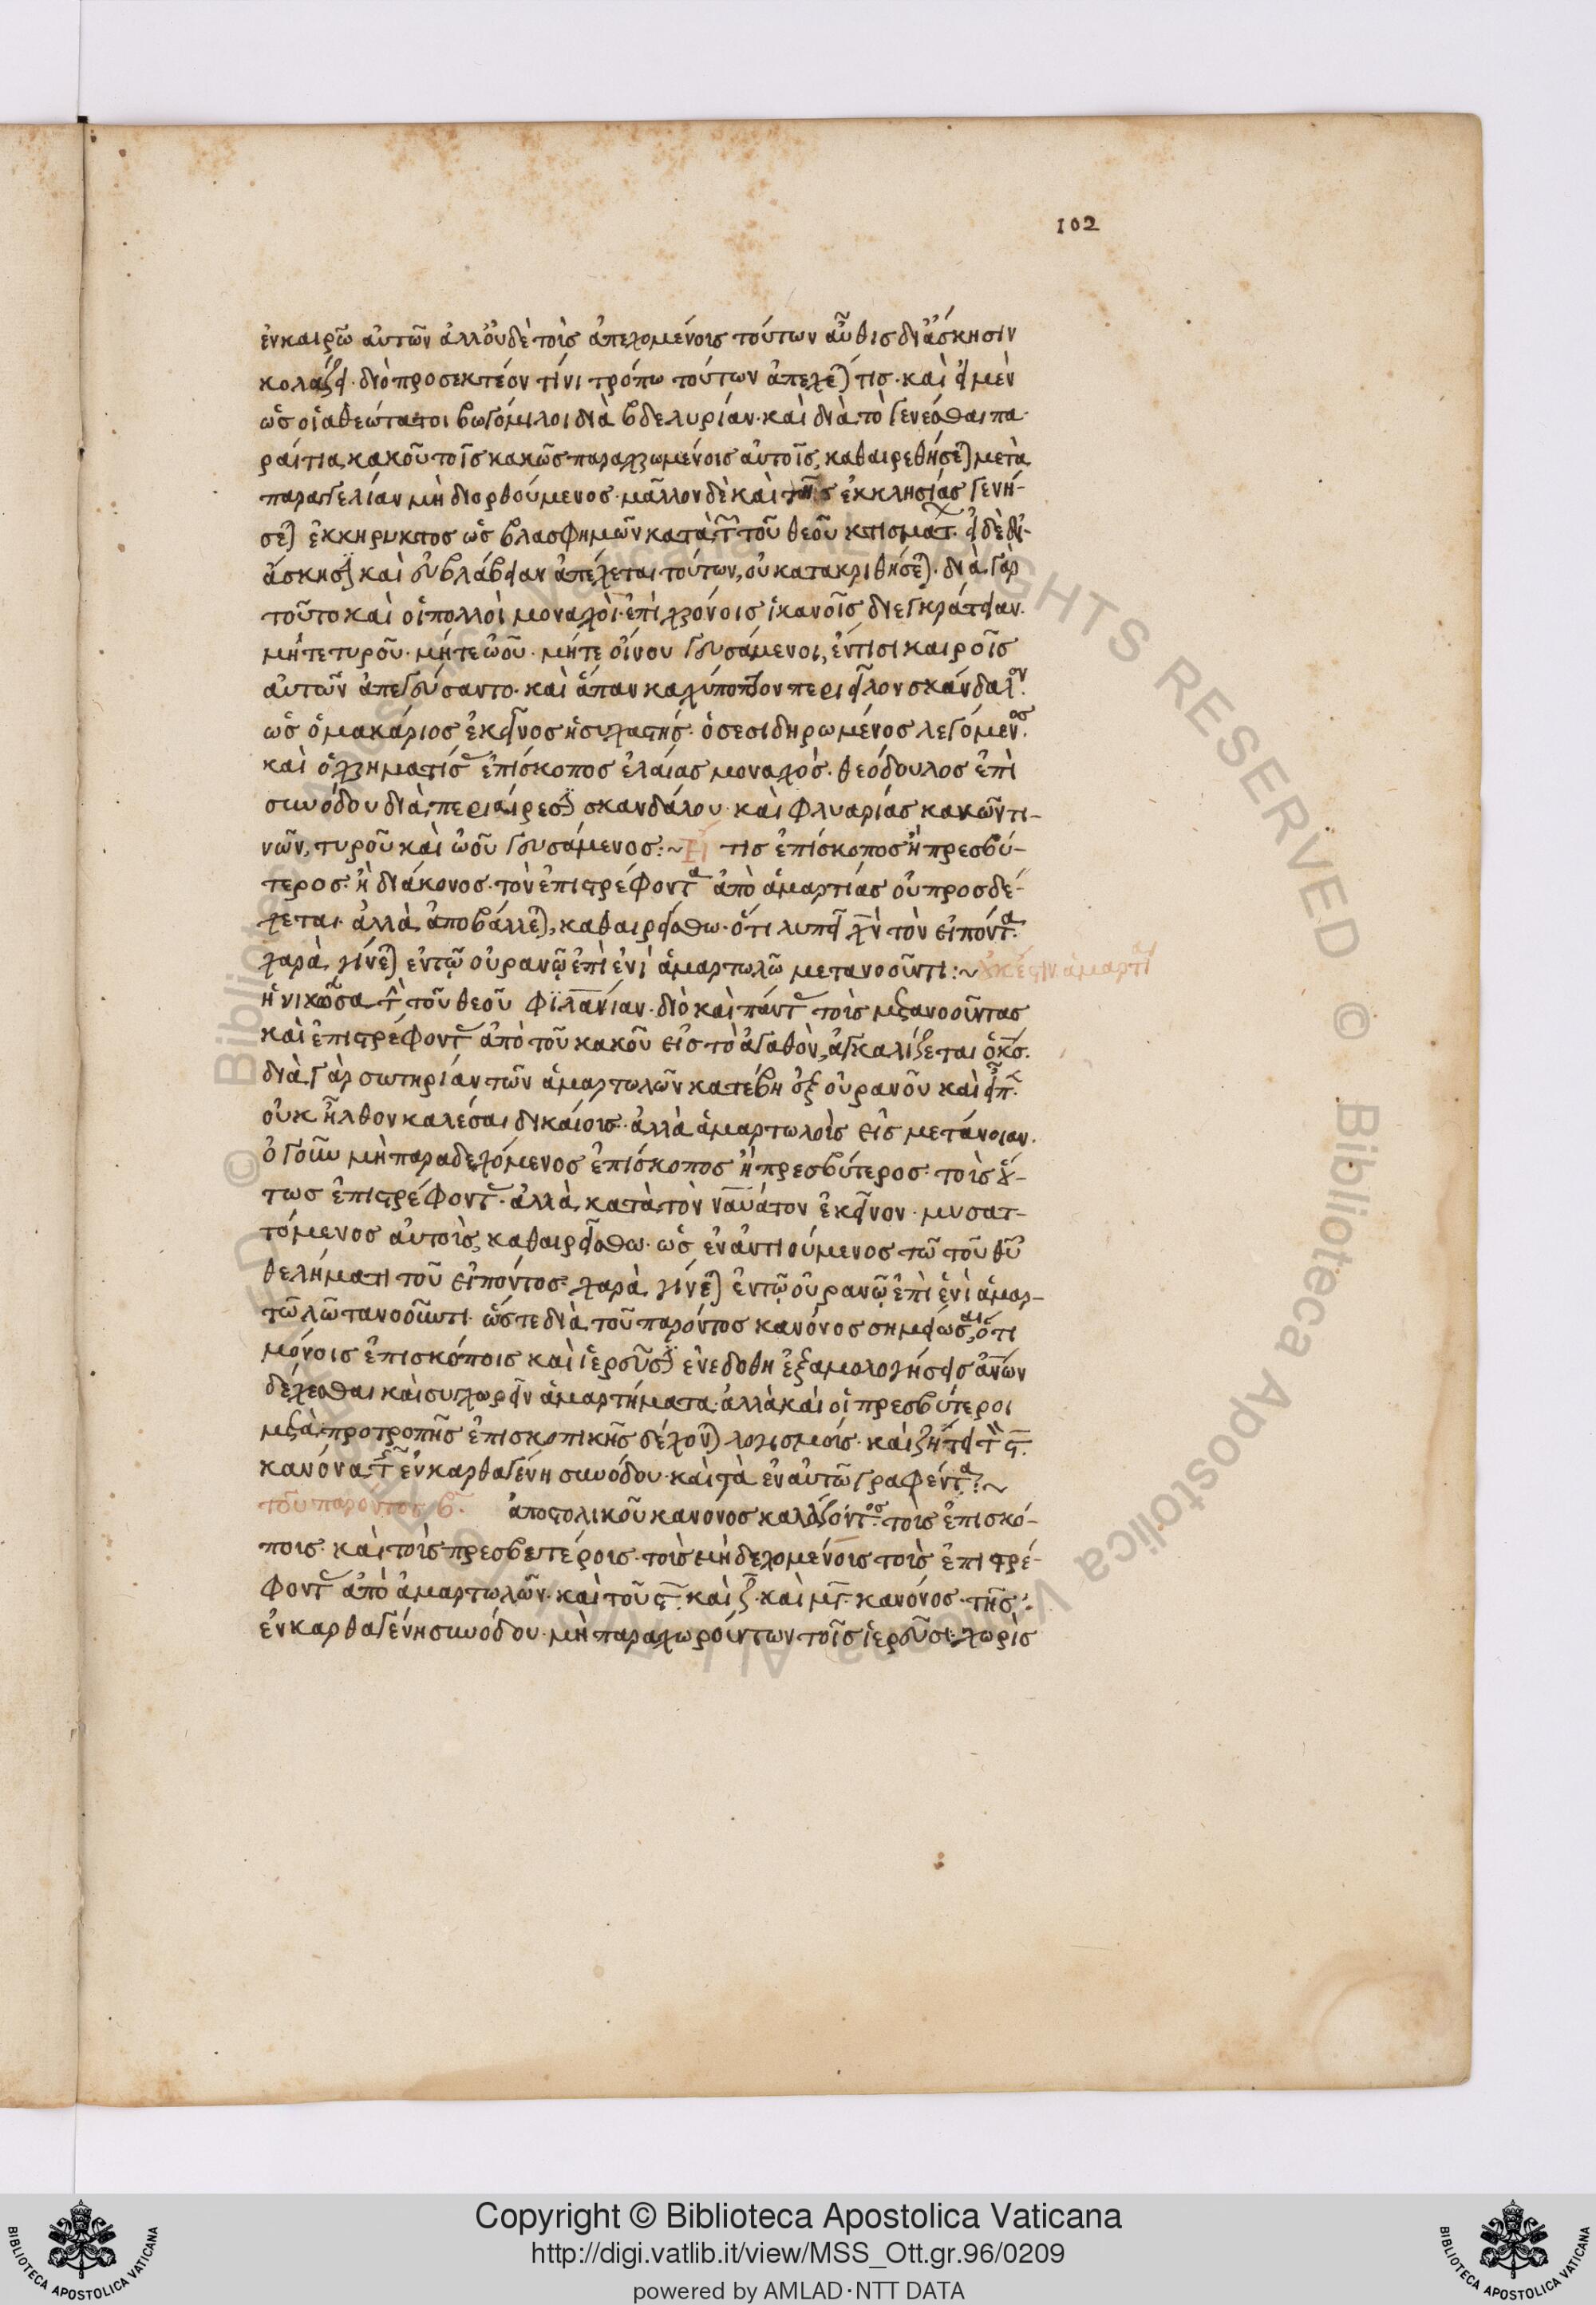 102
ἐν καιρῶ αὐτῶν ἀλλ' οὐδὲ τοὺς ἀπεχομένους τούτων αὖθις δι' ἄσκησιν
κολάζει. διὸ προσεκτέον τίνι τρόπω τούτων ἀπέχεται τις. καὶ εἰ μὲν
ὡς οἱ ἀθεώτατοι βωγόμιλοι διὰ βδελυρίαν. καὶ διὰ τὸ γενέσθαι πα-
ραίτια κακοῦ τοῖς κακῶς παραχρωμένοις αὐτοῖς, καθαιρεθήσεται μετὰ
παραγγελίαν μὴ διορθούμενος. μᾶλλον δὲ καὶ τῆς ἐκκλησίας γενή-
σεται ἐκκήρυκτος ὡς βλασφημῶν κατὰ τῶν τοῦ θεοῦ κτισμάτων. εἰ δὲ δι'
ἄσκησιν καὶ εὐλάβειαν ἀπέχεται τούτων, οὐ κατακριθήσεται. διὰ γὰρ
τοῦτο καὶ οἱ πολλοὶ μοναχοὶ ἐπὶ χρόνοις ἱκανοῖς δι' ἐγκράτειαν.
μήτε τυροῦ. μήτε ὠοῦ. μήτε οἴνου γευσάμενοι, ἔν τισι καιροῖς
αὐτῶν ἀπεγεύσαντο. καὶ ἅπαν καχύποπτον περιεῖλον σκάνδαλον.
ὡς ὁ μακάριος ἐκεῖνος ἡσυχαστής. ὁ σεσιδηρωμένος λεγόμενος.
καὶ ὁ χρηματίσας ἐπίσκοπος ἐλαίας μοναχὸς. θεόδουλος ἐπὶ
συνόδου διὰ περιαίρεσιν σκανδάλου. καὶ φλυαρίας κακῶν τι-
νῶν, τυροῦ καὶ ὠοῦ γευσάμενος:~ Εἴ τις ἐπίσκοπος ἢ πρεσβύ-
τερος. ἢ διάκονος. τὸν ἐπιστρέφοντα ἀπὸ ἁμαρτίας οὐ προσδέ-
χεται. ἀλλὰ ἀποβάλλεται, καθαιρείσθω. ὅτι λυπεῖ χν τὸν εἰπόντα.
χαρὰ γίνεται ἐν τῶ οὐρανῶ ἐπὶ ἑνὶ ἁμαρτωλῶ μετανοοῦντι:~ οὐκ ἔστιν ἁμαρτία
ἡ νικῶσα τὴν τοῦ θεοῦ φιλανίαν. διὸ καὶ πάντας τοὺς μετανοοῦντας
καὶ ἐπιστρέφοντας ἀπὸ τοῦ κακοῦ εἰς τὸ ἀγαθὸν, ἀγκαλίζεται ὁ κς.
διὰ γὰρ σωτηρίαν τῶν ἁμαρτωλῶν κατέβη ἐξ οὐρανοῦ καὶ εἶπεν.
οὐκ ἦλθον καλέσαι δικαίους. ἀλλὰ ἁμαρτωλοὺς εἰς μετάνοιαν.
ὁ γοῦν μὴ παραδεχόμενος ἐπίσκοπος ἢ πρεσβύτερος. τοὺς οὕ-
τως ἐπιστρέφοντας. ἀλλὰ κατὰ τὸν ναυάτον ἐκεῖνον. μυσατ-
τόμενος αὐτοὺς, καθαιρείσθω. ὡς ἐναντιούμενος τῶ τοῦ θυ
θελήματι τοῦ εἰπόντος. χαρὰ γίνεται ἐν τῶ οὐρανῶ ἐπὶ ἑνὶ ἁμαρ-
τῶλῶ τανοοῦντι. ὥστε διὰ τοῦ παρόντος κανόνος σημείωσαι, ὅτι
μόνοις ἐπισκόποις καὶ ἱερεῦσιν ἐνεδόθη ἐξαμολογήσεις ἀνων
δέχεσθαι καὶ συγχωρεῖν ἁμαρτήματα. ἀλλὰ καὶ οἱ πρεσβύτεροι
μετὰ προτροπῆς ἐπισκοπικῆς δέχονται λογισμούς. καὶ ζήτει τὸν ϛ.
κανόνα τῆς ἐν καρθαγένη συνόδου. καὶ τὰ ἐν αὐτῶ γραφέντα:~
τοῦ παρόντος β. ἀποστολικοῦ κανόνος κολάζοντος. τοὺς ἐπισκό-
πους. καὶ τοὺς πρεσβυτέρους. τοὺς μὴ δεχομένους τοὺς ἐπιστρέ-
φοντας ἀπὸ ἁμαρτωλῶν. καὶ τοῦ ϛ. καὶ ζ. καὶ μγ. κανόνος. τῆς
ἐν καρθαγένη συνόδου. μὴ παραχωρούντων τοῖς ἱερεῦσι. χωρὶς
© Biblioteca Apostolica Vaticana ALL RIGHTS RESERVED
Copyright © Biblioteca Apostolica Vaticana
http://digi.vatlib.it/view/MSS_Ott.gr.96/0209
powered by AMLAD·NTT DATA
BIBLIOTECA APOSTOLICA VATICANA
BIBLIOTECA APOSTOLICA VATICANA